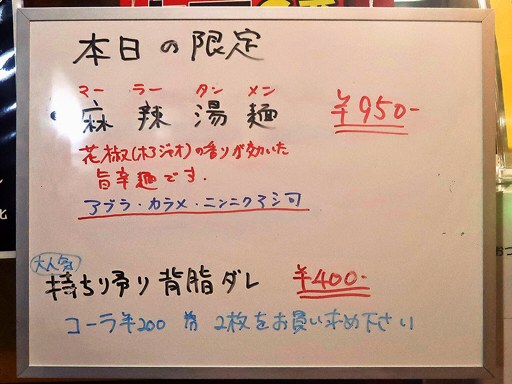 本日の限定
マーラータンメン
麻辣湯麺 ¥950-
花椒(ホアジャオ)の香りが効いた
旨辛麺です.
アブラ・カラメ・ニンニクマシ可
大人気
持ち帰り背脂ダレ ¥400-
コーラ¥200 2枚をお買い求め下さい